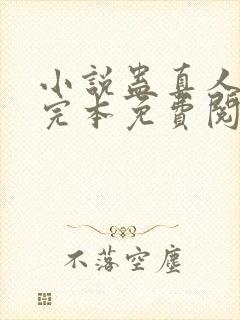 小說蠱真人
完本免費閱
不落空塵